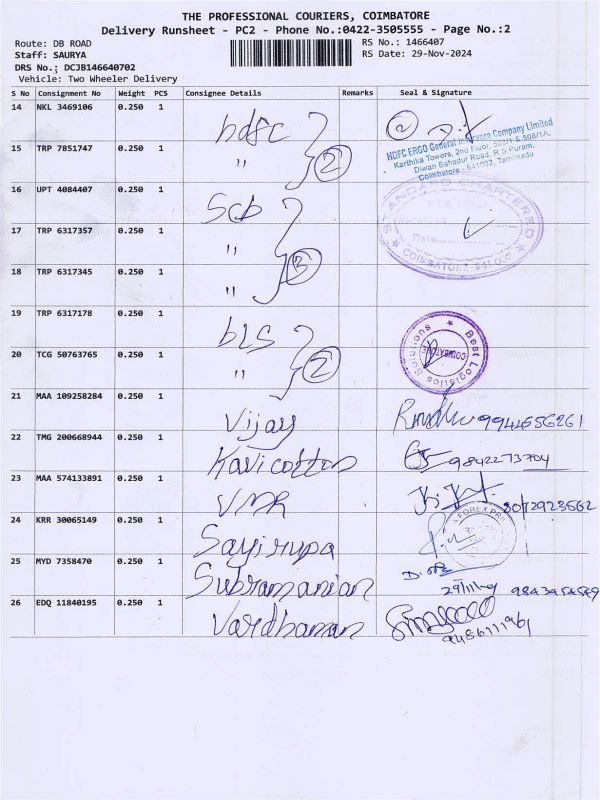 THE PROFESSIONAL COURIERS, COIMBATORE
Delivery Runsheet - PC2 - Phone No.:0422-3505555 - Page No.:2
Route: DB ROAD
RS No.: 1466407
Staff: SAURYA
RS Date: 29-Nov-2024
DRS No.; DCJB146640702
Vehicle: Two Wheeler Delivery
S No Consignment No Weight PCS Consignee Details Remarks Seal & Signature
14 NKL 3469106 0.250 1 hdfc 2
HDFC ERGO General Insurance Company Limited
Karthika Towers, 2nd Floor, 508/1 & 508/1A,
Diwan Bahadur Road, R.S Puram,
Coimbatore - 641002, Tamilnadu
15 TRP 7851747 0.250 1 " 2
16 UPT 4084407 0.250 1 SCB
STANDARD CHARTERED
Date
COIMBATORE-641 002
17 TRP 6317357 0.250 1 "
18 TRP 6317345 0.250 1 " 3
19 TRP 6317178 0.250 1 bLS
Best Logistics Solutions
COIMBATORE
20 TCG 50763765 0.250 1 " 2
21 MAA 109258284 0.250 1 Vijay
22 TMG 200668944 0.250 1 Kavi cotton 9842273704
23 MAA 574133891 0.250 1 VMR
24 KRR 30065149 0.250 1 Sayirupa
FOREX PR
25 MYD 7358470 0.250 1 Subramanian
26 EDQ 11840195 0.250 1 Vardhaman